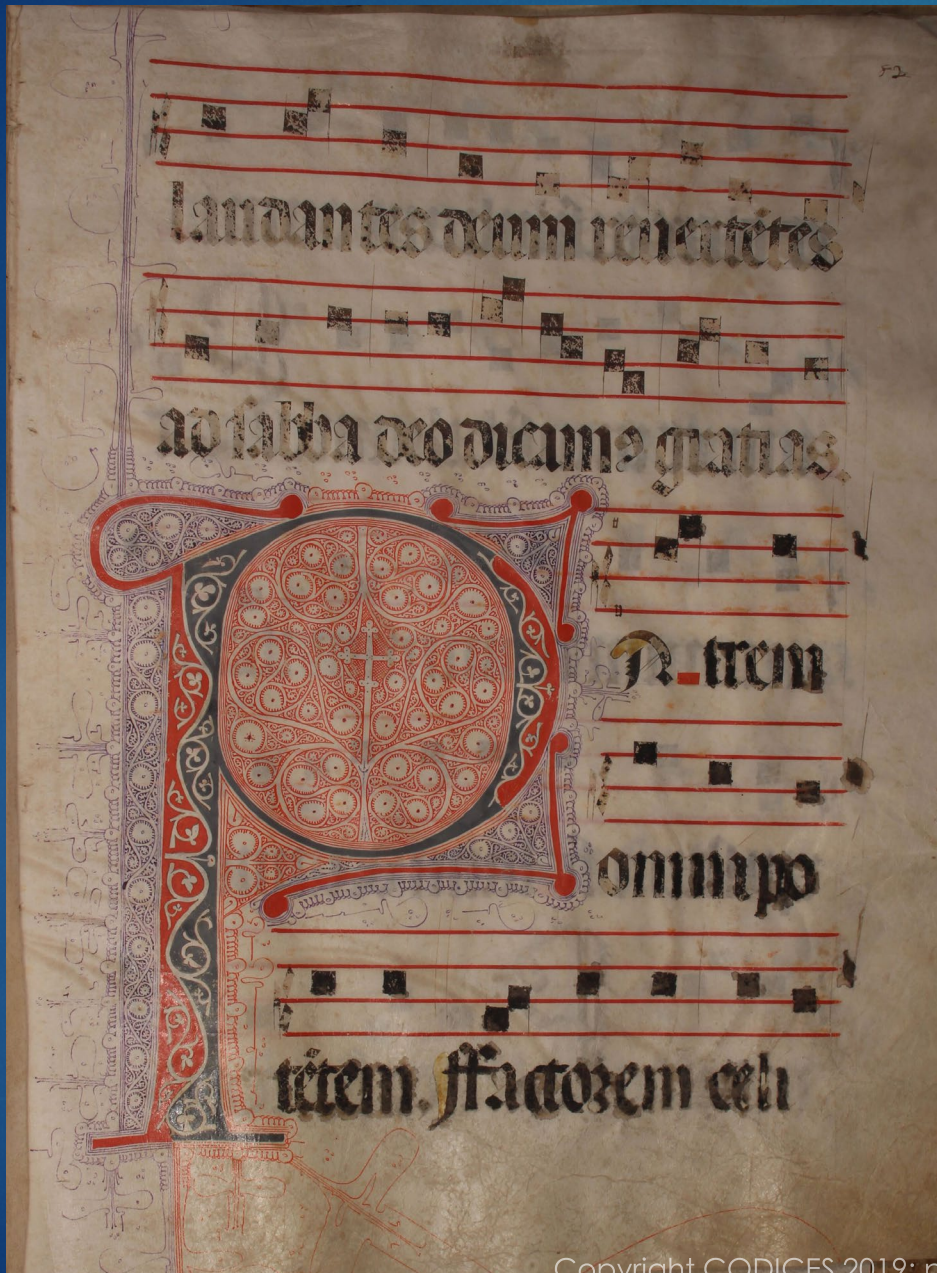 laudantes deum reuertētes
ad sabba deo dicamꝰ gratias.
PA-trem
omnipo
tētem. ffactorem celi
Copyright CODICES 2019;